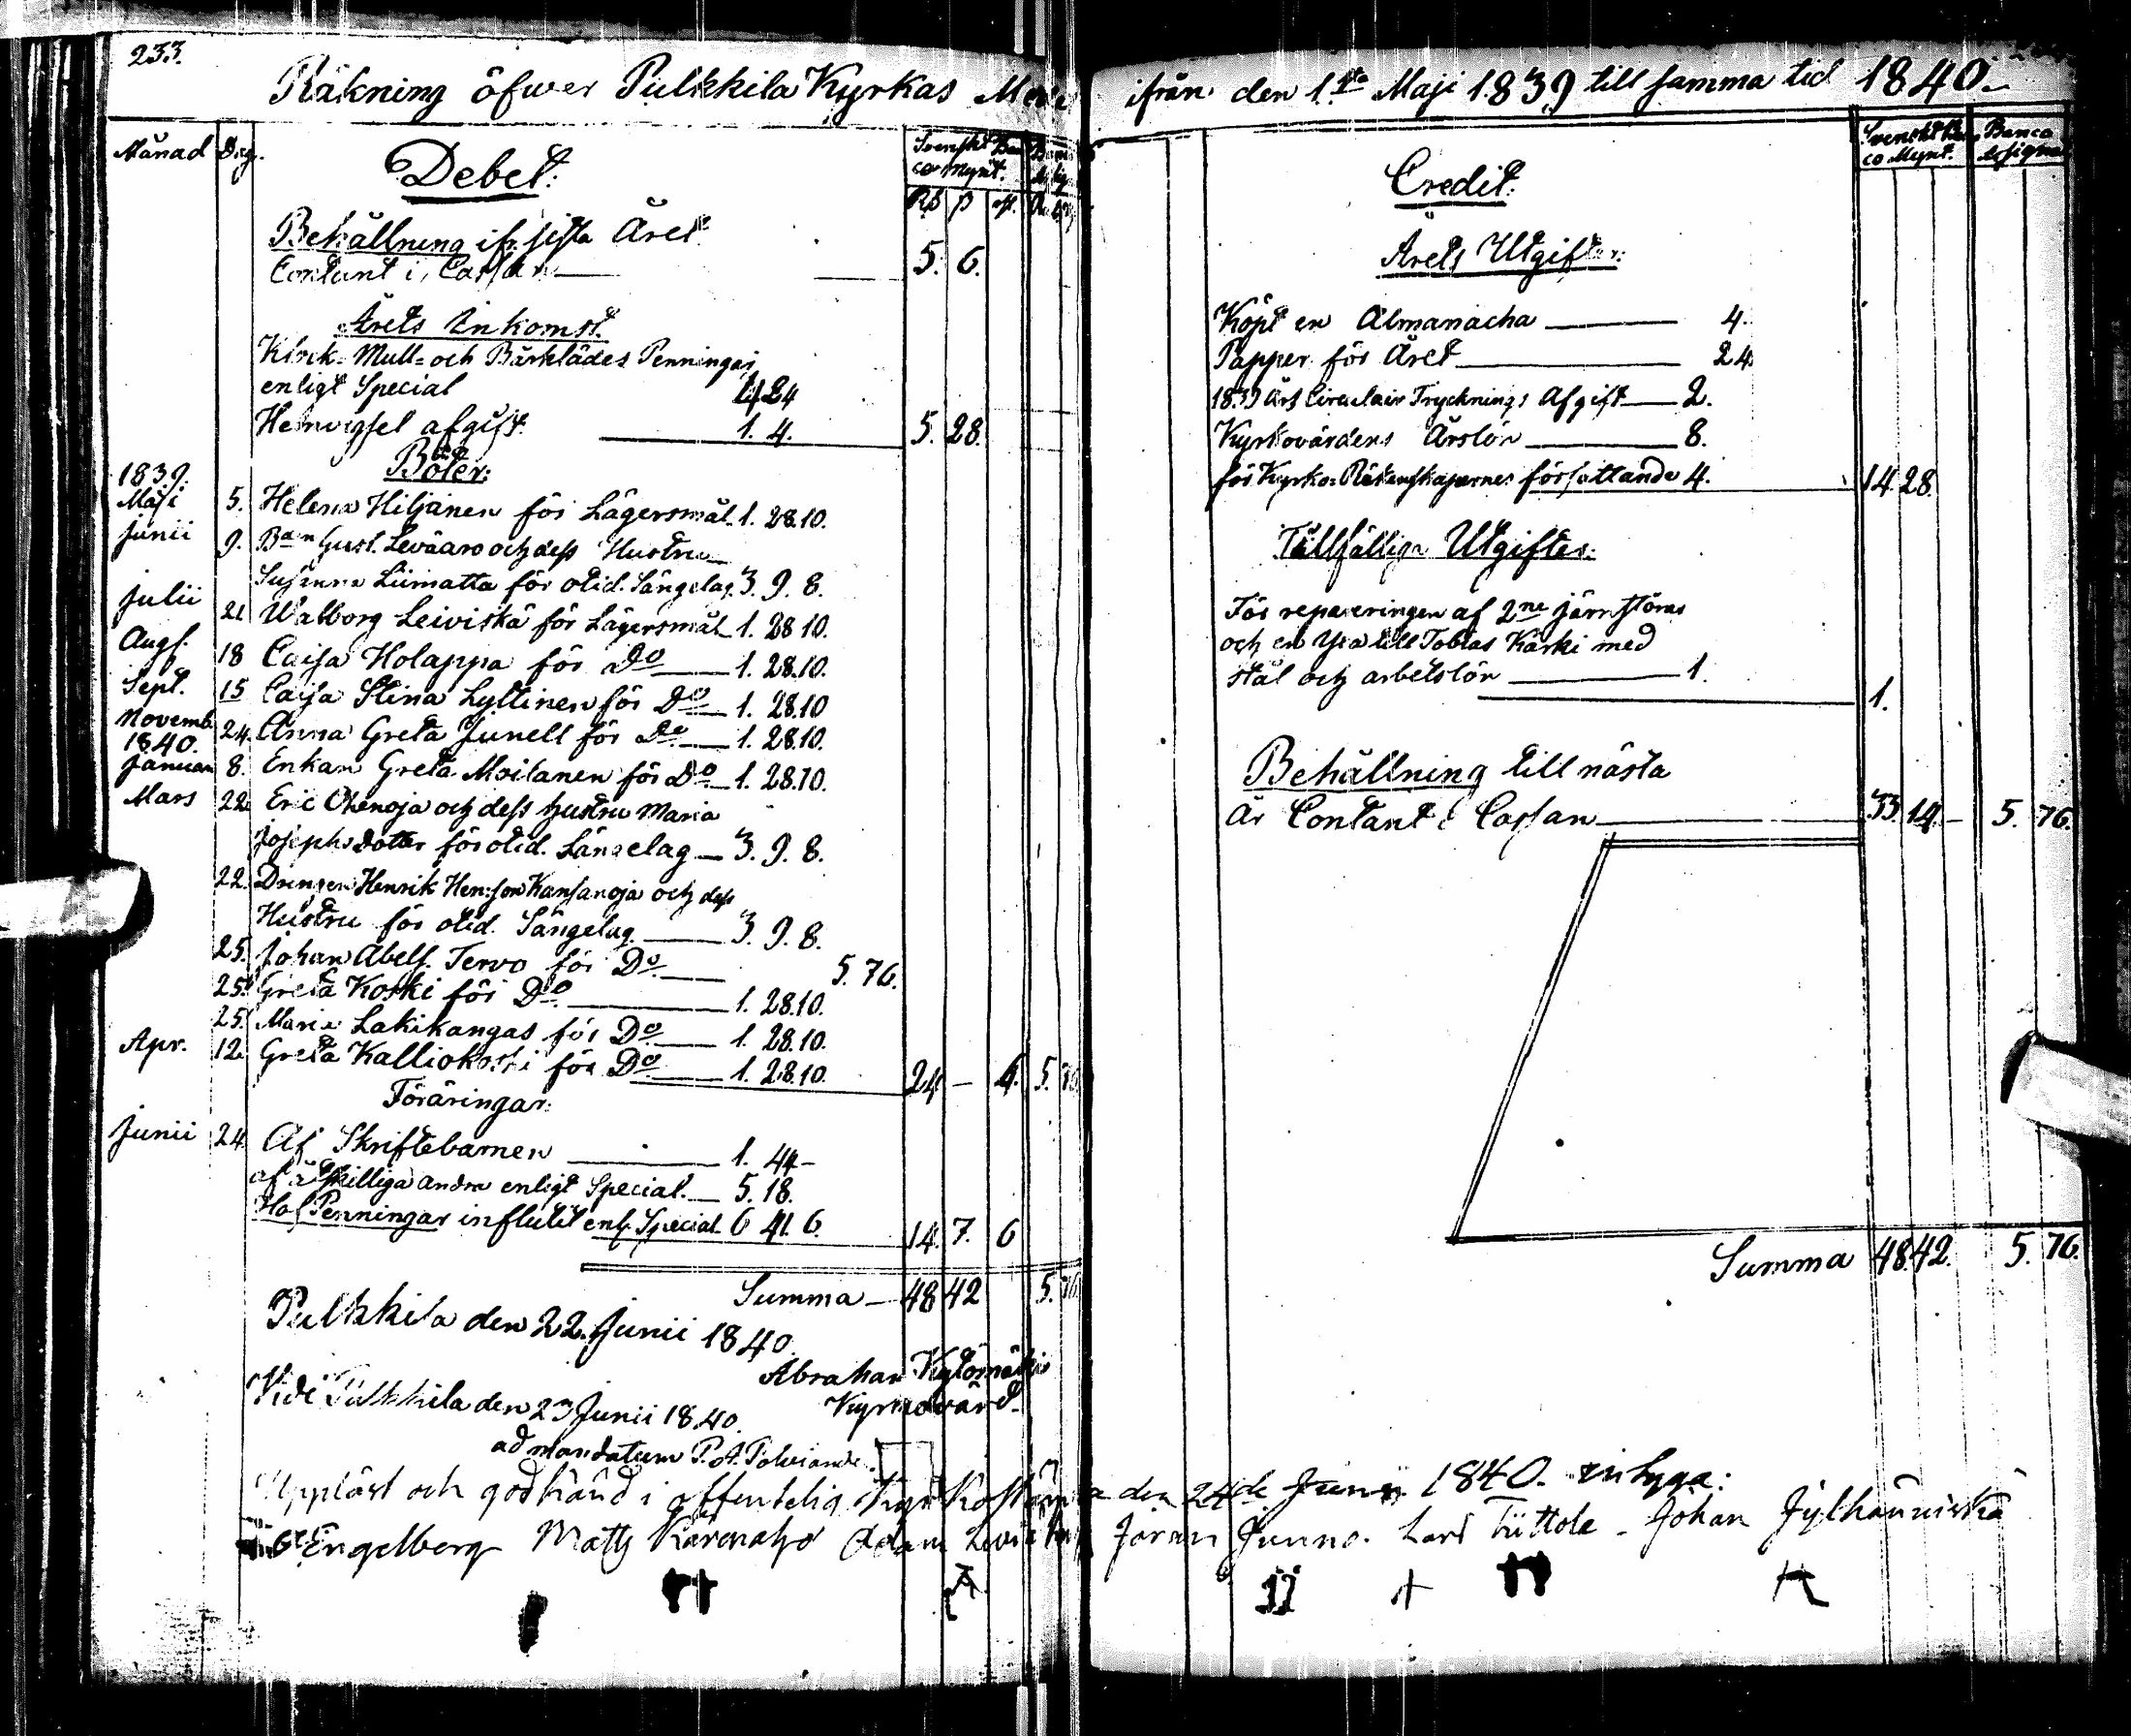 233.
Räkning öfwer Pulkkila Kyrkas
Månad Dag.
Debet:
Svenskt Ban
co Mynt.
Rβ β rst.
Behållning ifr. sista Året
Contant i Cassan 5. 6.
Årets Inkomst.
Klock- Mull- och Bårklädes Penningar
enligt Special 4 24
Hemvigsel afgift. 1. 4. 5. 28.
Böter:
1839.
Maji 5. Helena Hiljanen för Lägersmål 1. 28.10.
Junii 9. Bdn Gust. Leväaro och dess Hustru
Susanna Liimatta för otid. Sängelag. 3. 9. 8.
Julii 21 Walborg Leiviskä för Lägersmål 1. 28 10.
Augs. 18 Caisa Holappa för Do 1. 28.10.
Sept. 15 Caisa Stina Lyttinen för Do 1. 28.10
Novemb. 24. Anna Greta Junell för Do 1. 28.10.
1840.
Januari 8. Enkan Greta Moilanen för Do 1. 28.10.
Mars 22 Eric Ohenoja och dess hustru Maria
Josephsdotter för otid. Sängelag 3. 9. 8.
22. Drengen Henrik Henrson Kansanoja och dess
Hustru för otid. Sängelag 3. 9. 8.
25. Johan Abelss. Tervo för Do. 5. 76.
25. Greta Koski för Do 1. 28.10.
25. Maria Lakikangas för Do 1. 28.10.
Apr. 12 Greta Kalliokoski för Do 1. 28.10. 24 - 4. 5.
Föräringar:
Junii 24. Af Skriftebarnen 1. 44 -
af åtskilliga andra enligt Special. 5. 18.
Håf Penningar influtit enl. Special 6 41. 6. 14. 7. 6
Summa 48 42 5.
Pulkkila den 22. Junii 1840.
Abraham Kytömäki
Kyrkovärd.
Vidi Pulkkila den 23 Junii 1840.
ad mandatum P. A.
Uppläst och godkänd i offentelig
Engelberg Matts Adam
ifrån den 1sta Maji 1839 till samma tid 1840.
Svenskt Ban
co Mynt. Banco
Assignat
Credit:
Årets Utgifter:
Köpt en Almanacha 4.
Papper för Året 24
1839 Års Circulair Trycknings Afgift 2.
Kyrkovärdens Årslön 8.
för Kyrko-Räkenskapernes författande 4. 14. 28.
Tillfällige Utgifter:
För repareringen af 2ne järnstörar
och en Yxa till Tobias Karki med
stål och arbetslön 1. 1.
Behållning till nästa
År Contant i Cassan 33. 14. - 5. 76.
Summa 48. 42. 5. 76.
den 24de Junii 1840. intyga:
Jöran Junno. Lars Tuttola - Johan Jylhänniskä